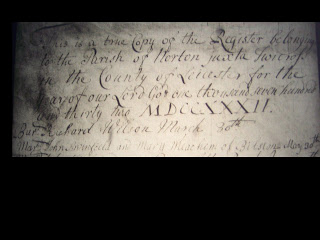 This is a true Copy of the Register belonging
to the Parish of Norton juxta Twicross
in the County of Leicester for the
year of our Lord God one thousand seven hundred
and thirty two MDCCXXXII.
Bap. Richard Wilson March 30th
Mar. John Swinfield and Mary of May